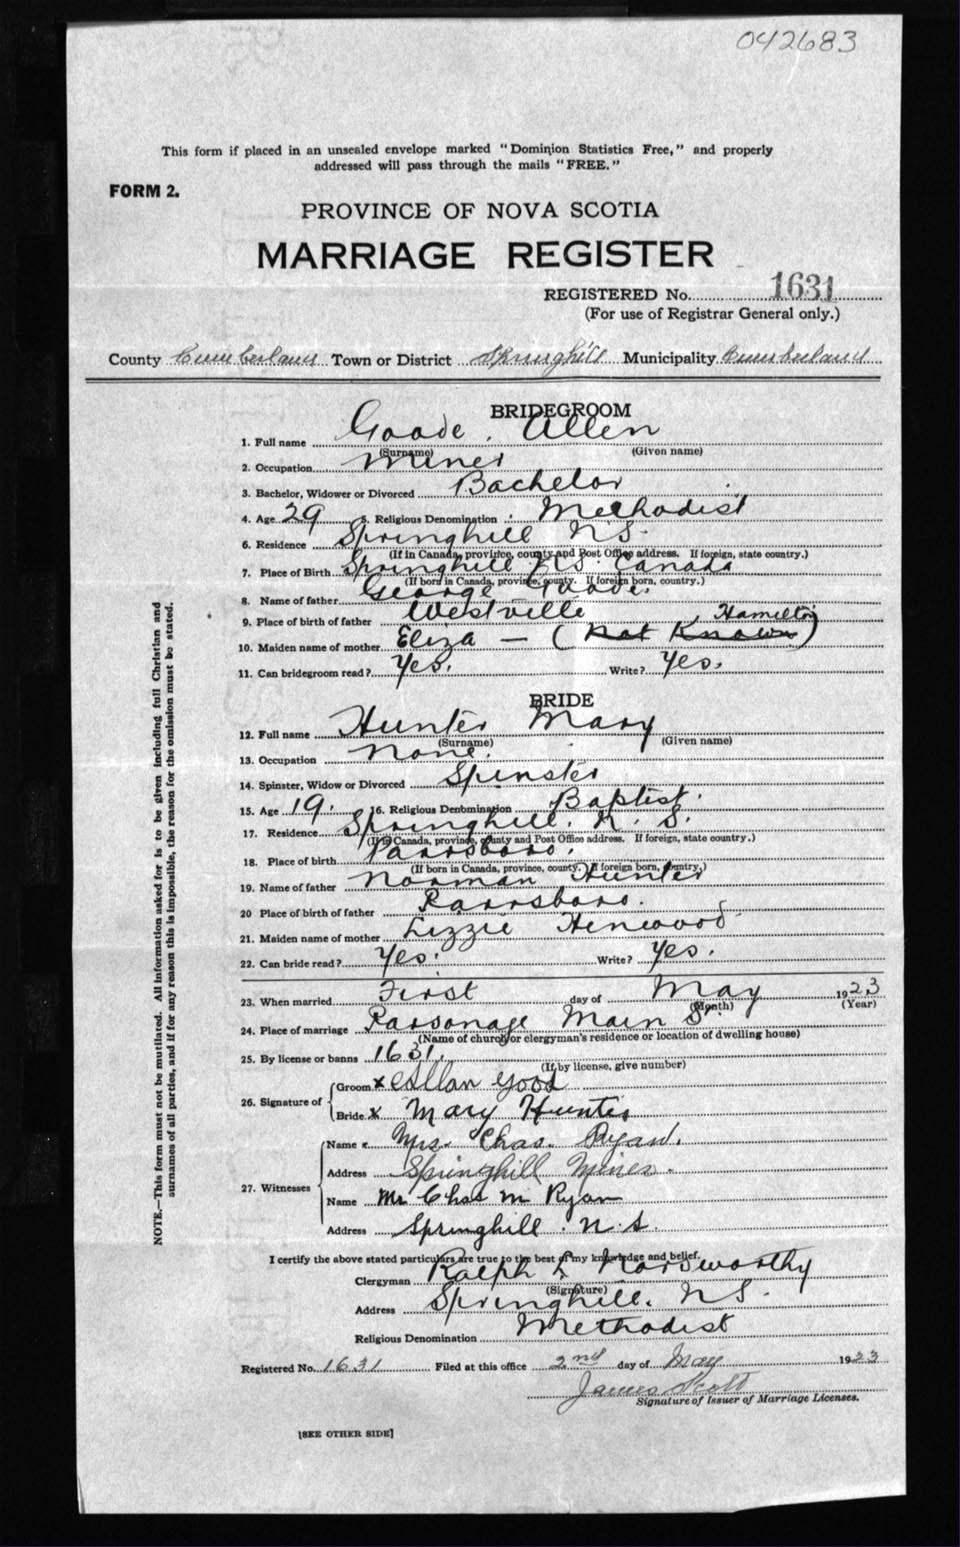 042683
This form if placed in an unsealed envelope marked "Dominion Statistics Free," and properly
addressed will pass through the mails "FREE."
FORM 2.
PROVINCE OF NOVA SCOTIA
MARRIAGE REGISTER
REGISTERED No. 1631
(For use of Registrar General only.)
County Cumberland Town or District Springhill Municipality Cumberland
BRIDEGROOM
1. Full name Goode, Allen
(Surname) (Given name)
2. Occupation Miner
3. Bachelor, Widower or Divorced Bachelor
4. Age 29 5. Religious Denomination Methodist
6. Residence Springhill N.S.
(If in Canada, province, county and Post Office address. If foreign, state country.)
7. Place of Birth Springhill N.S. Canada
(If born in Canada, province, county. If foreign born, country.)
8. Name of father George Goode.
9. Place of birth of father Westville
10. Maiden name of mother Eliza — (Not Known) Hamilton
11. Can bridegroom read? Yes. Write? Yes.
BRIDE
12. Full name Hunter Mary
(Surname) (Given name)
13. Occupation None.
14. Spinster, Widow or Divorced Spinster
15. Age 19. 16. Religious Denomination Baptist.
17. Residence Springhill. N. S.
(If in Canada, province, county and Post Office address. If foreign, state country.)
18. Place of birth Parrsboro.
(If born in Canada, province, county. If foreign born, country.)
19. Name of father Norman Hunter
20 Place of birth of father Parrsboro.
21. Maiden name of mother Lizzie Henwood
22. Can bride read? Yes. Write? Yes.
23. When married First day of May 1923
(Month) (Year)
24. Place of marriage Parsonage Main St.
(Name of church or clergyman's residence or location of dwelling house)
25. By license or banns 1631.
(If by license, give number)
26. Signature of Groom x Allan Good
Bride x Mary Hunter
27. Witnesses Name Mrs. Chas. Ryan.
Address Springhill Mines.
Name Mr Chas M Ryan
Address Springhill. N. S.
I certify the above stated particulars are true to the best of my knowledge and belief.
Clergyman Ralph E Horsworthy
(Signature)
Address Springhill. N.S.
Religious Denomination Methodist
Registered No. 1631 Filed at this office 2nd day of May 1923
James Scott
Signature of Issuer of Marriage Licenses.
[SEE OTHER SIDE]
NOTE.—This form must not be mutilated. All information asked for is to be given including full Christian and
surnames of all parties, and if for any reason this is impossible, the reason for the omission must be stated.